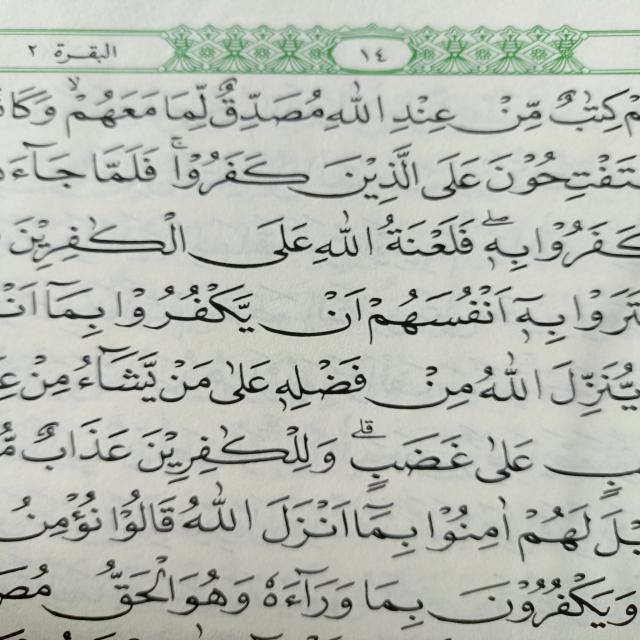 البقرة ٢
١٤
كِتٰبٌ مِّنْ عِنْدِ اللّٰهِ مُصَدِّقٌ لِّمَا مَعَهُمْ
عَلَى الَّذِيْنَ كَفَرُوْا ۚ فَلَمَّا
كَفَرُوْا بِهٖ ؗ فَلَعْنَةُ اللّٰهِ عَلَى الْكٰفِرِيْنَ
بِهٖۤ اَنْفُسَهُمْ اَنْ يَّكْفُرُوْا بِمَاۤ
يُّنَزِّلَ اللّٰهُ مِنْ فَضْلِهٖ عَلٰى مَنْ يَّشَآءُ مِنْ
عَلٰى غَضَبٍ ؕ وَلِلْكٰفِرِيْنَ عَذَابٌ
لَهُمْ اٰمِنُوْا بِمَاۤ اَنْزَلَ اللّٰهُ قَالُوْا نُؤْمِنُ
وَيَكْفُرُوْنَ بِمَا وَرَآءَهٗ وَهُوَ الْحَقُّ